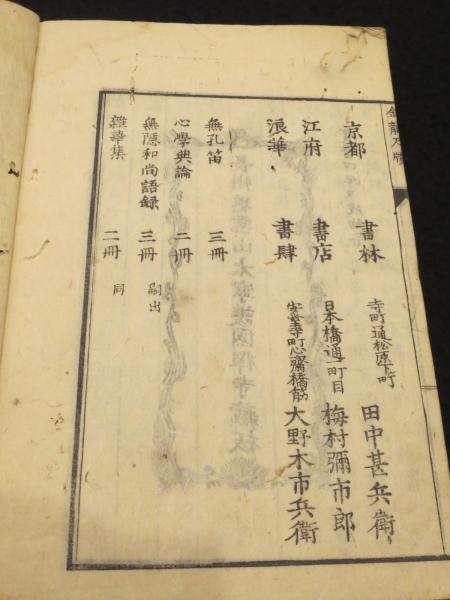 京都 書林 寺町通松原下町 田中甚兵衛
江府 書店 日本橋通一町目 梅村彌市郎
浪華 書肆 安堂寺町心齋橋筋 大野木市兵衛
無孔笛 三冊
心學典論 二冊
無隱和尚語録 三冊 嗣出
雜華集 二冊 同